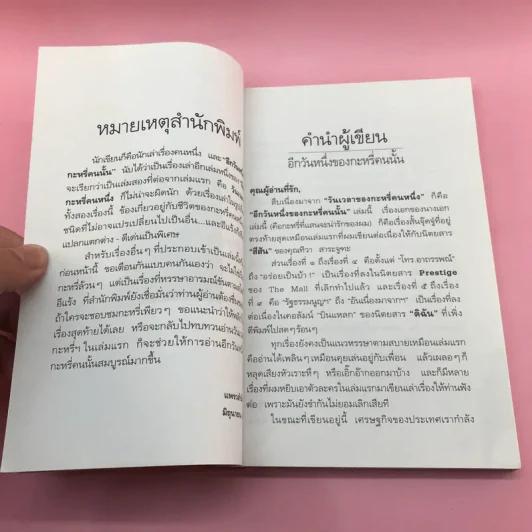 หมายเหตุสำนักพิมพ์
นักเขียนก็คือนักเล่าเรื่องคนหนึ่ง และ
กะหรี่คนนั้น" นับได้ว่าเป็นเรื่องเล่าอีกเล่มหนึ่งของ
จะเรียกว่าเป็นเล่มสองที่ต่อจากเล่มแรก คือ
กะหรี่คนหนึ่ง ก็ไม่น่าจะผิดนัก ด้วยเรื่องเล่าใน
ทั้งสองเรื่องนี้ ข้องเกี่ยวอยู่กับชีวิตของกะหรี่คน
ชนิดที่ไม่อาจแปรเปลี่ยนไปเป็นอื่น...และ
แปลกแตกต่าง - ดีเด่นเป็นพิเศษ
สำหรับเรื่องอื่นๆ ที่ประกอบเข้าเป็นเล่ม
ก่อนหน้านี้ ขอเตือนกันแบบคนกันเองว่า จะไม่ใช่
กะหรี่ล้วนๆ แต่เป็นเรื่องที่หรรษาอารมณ์ขันตาม
อีแร้ง ที่สำนักพิมพ์ยังเชื่อมั่นว่าท่านผู้อ่านต้อง
ถ้าใครจะชอบชมกะหรี่เพียวๆ ขอแนะนำว่าให้
เรื่องสุดท้ายได้เลย หรือจะกลับไปทบทวนอ่าน
กะหรี่ฯ ในเล่มแรก ก็จะช่วยให้การอ่านอีกวัน
กะหรี่คนนั้นสมบูรณ์มากขึ้น
คำนำผู้เขียน
อีกวันหนึ่งของกะหรี่คนนั้น
คุณผู้อ่านที่รัก,
สืบเนื่องมาจาก "วันเวลาของกะหรี่คนหนึ่ง" ก็คือ
"อีกวันหนึ่งของกะหรี่คนนั้น" เล่มนี้ เรื่องเอกของนางเอก
เล่มนี้ (คือกะหรี่ที่แสนจะน่ารักของผม) ก็คือเรื่องสั้นจุ๊ดจู๋ที่อยู่
ตรงท้ายสุดเหมือนเล่มแรกที่ผมเขียนต่อเนื่องให้กับนิตยสาร
"สีสัน" ของคุณทิวา สาระจูฑะ
ส่วนเรื่องที่ ๑ ถึงเรื่องที่ ๔ คือตั้งแต่ "โทร.อาถรรพณ์"
ถึง "อร่อยเป็นบ้า!" เป็นเรื่องที่ลงในนิตยสาร Prestige
ของ The Mall ที่เลิกทำไปแล้ว และเรื่องที่ ๕ ถึงเรื่อง
ที่ ๙ คือ "รัฐธรรมนูญฯ" ถึง "อันเนื่องมาจากฯ" เป็นเรื่องที่ลง
ต่อเนื่องในคอลัมน์ "ปั่นแหลก" ของนิตยสาร "ดิฉัน" ที่เพิ่ง
ตีพิมพ์ไปสดๆ ร้อนๆ
ทุกเรื่องยังคงเป็นแนวหรรษาตามสบายเหมือนเล่มแรก
คืออ่านได้เพลินๆ เหมือนคุยเล่นอยู่กับเพื่อน แล้วเผลอๆ ก็
หลุดเสียงหัวเราะหึๆ หรือเอิ๊กอ๊ากออกมาบ้าง และก็มีหลาย
เรื่องที่ผมหยิบเอาตัวละครในเล่มแรกมาเขียนเล่าเรื่องให้ท่านฟัง
ต่อ เพราะมันยังขำกันไม่ยอมเลิกเสียที
ในขณะที่เขียนอยู่นี้ เศรษฐกิจของประเทศเรากำลัง